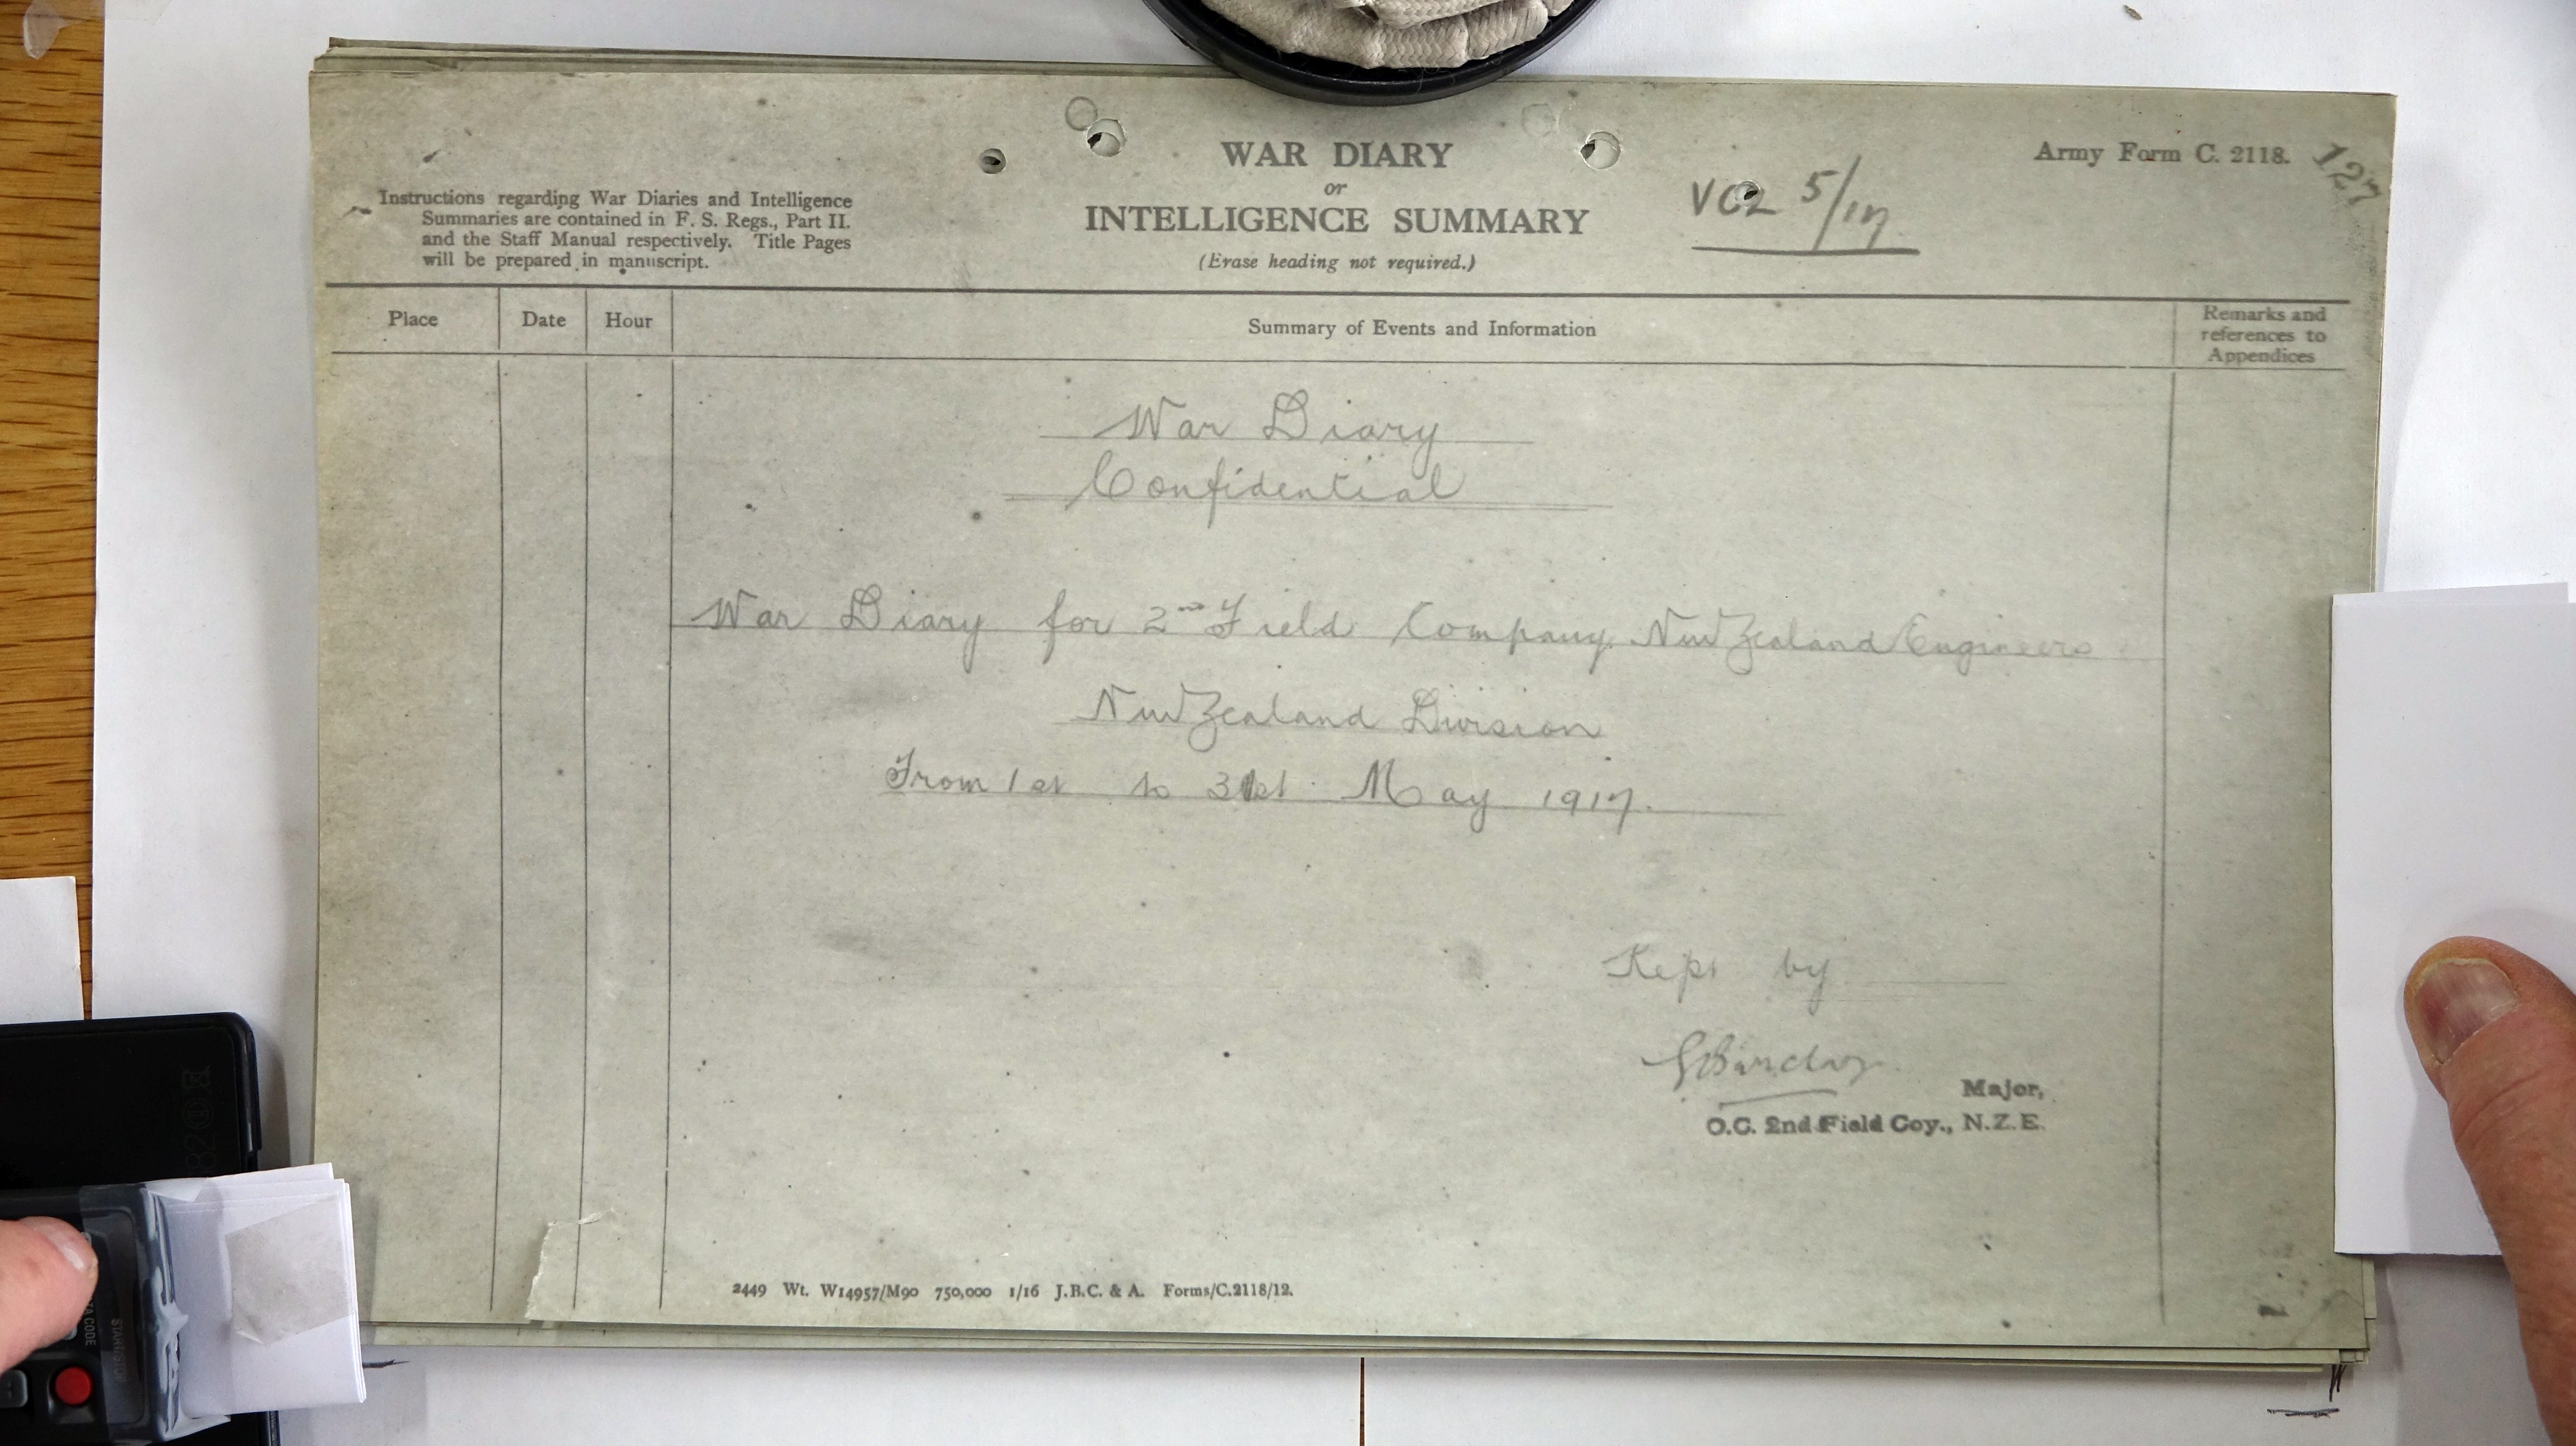 WAR DIARY
or
INTELLIGENCE SUMMARY
(Erase heading not required.)
Army Form C. 2118.
127
VOL 5/17
Instructions regarding War Diaries and Intelligence
Summaries are contained in F. S. Regs., Part II.
and the Staff Manual respectively. Title Pages
will be prepared in manuscript.
Place
Date
Hour
Summary of Events and Information
Remarks and
references to
Appendices
War Diary
Confidential
War Diary for 2nd Field Company New Zealand Engineers
New Zealand Division
From 1st to 31st May 1917.
Kept by
Barclay
Major,
O.C. 2nd Field Coy., N.Z.E.
2449 Wt. W14957/M90 750,000 1/16 J.B.C. & A. Forms/C.2118/12.